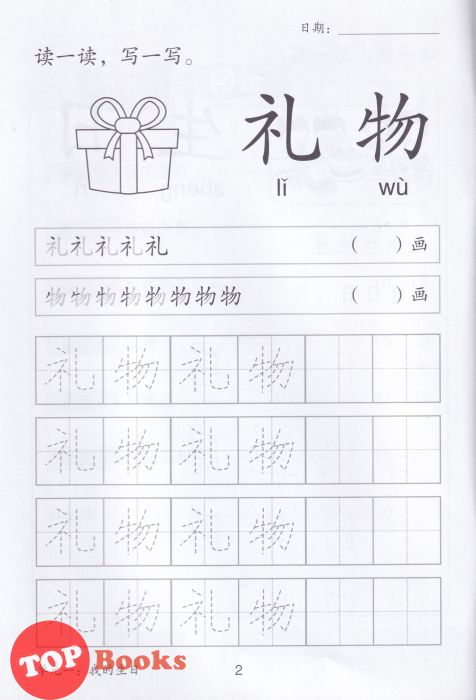 日期：
读一读，写一写。
礼物
lǐ wù
礼礼礼礼礼 （ ）画
物物物物物物物物 （ ）画
礼物礼物
礼物礼物
礼物礼物
礼物礼物
TOP Books
我的生日
2